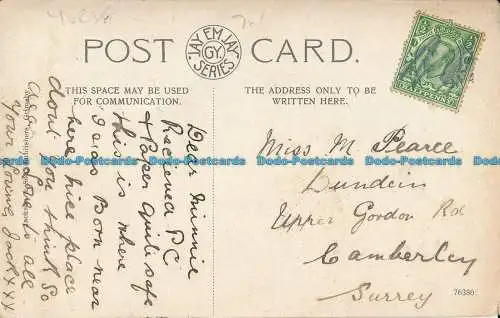 POST CARD.
JAY EM JAY
"GY."
SERIES
THIS SPACE MAY BE USED
FOR COMMUNICATION.
THE ADDRESS ONLY TO BE
WRITTEN HERE.
HALFPENNY
Dear Minnie
Recieved P.C
& Paper quite safe
this is where
I was Born near
here nice place
dont you think so
Love to all
Your Loving Jack xxx
Miss M Pearce
Dundein
Upper Gordon Rd
Camberley
Surrey
76380
Dodo-Postcards Dodo-Postcards Dodo-Postcards Dodo-Postcards Dodo-Postcards